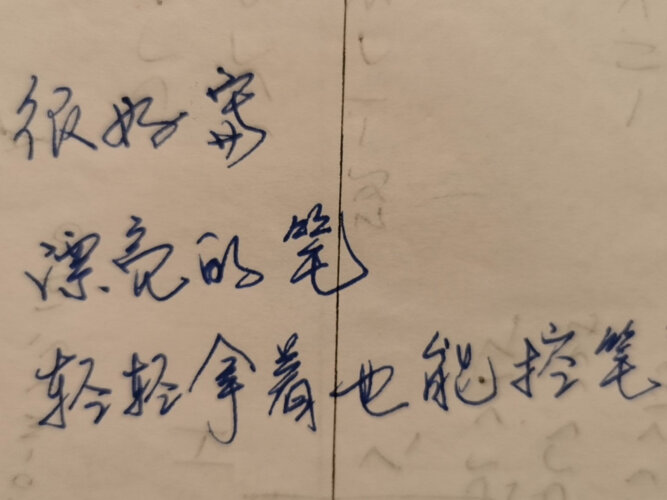 很好写
漂亮的笔
轻轻拿着也能控笔